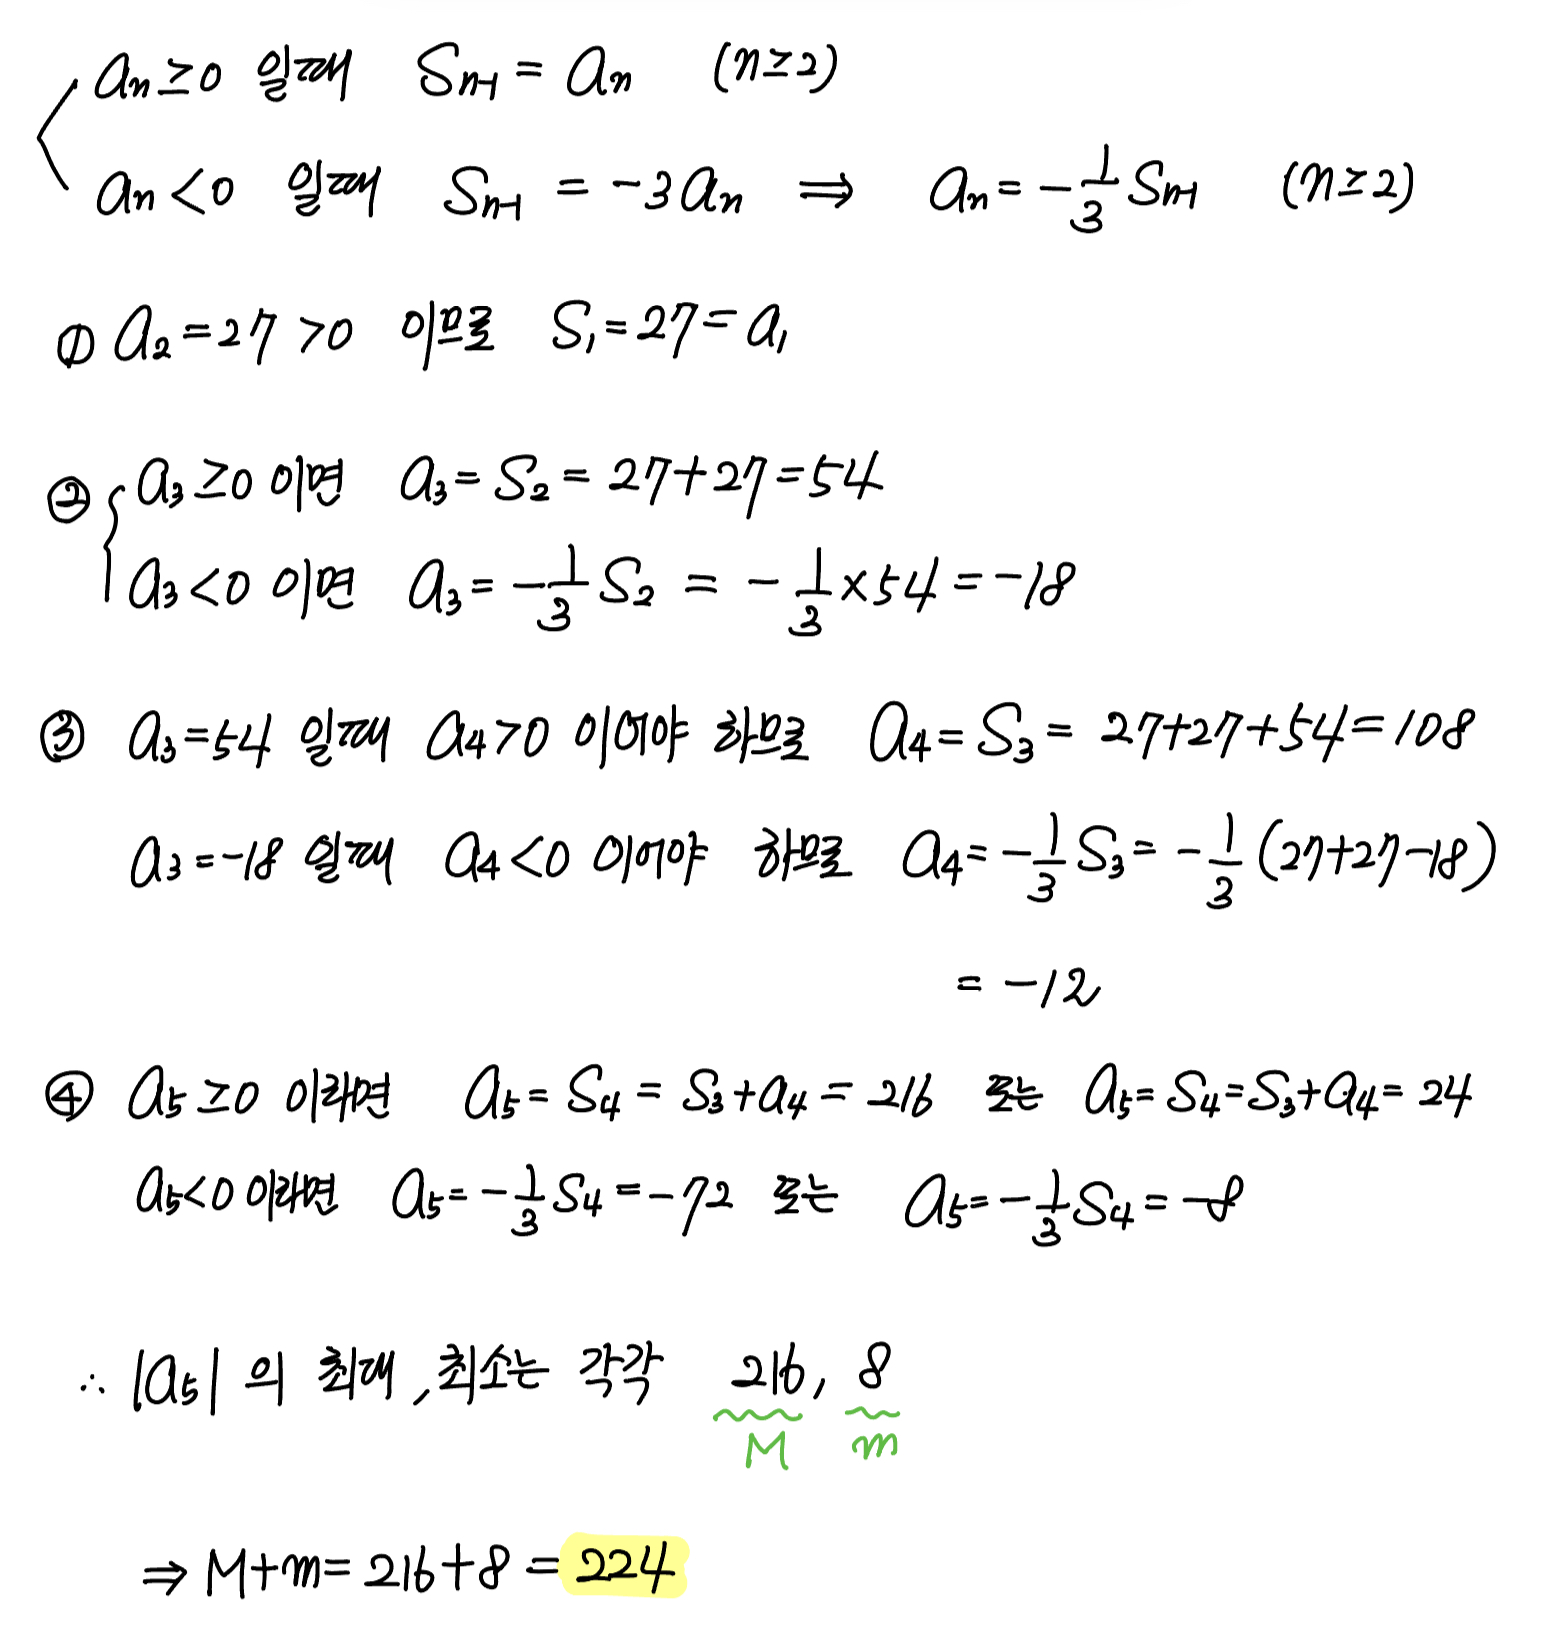 aₙ≥0 일때 Sₙ₋₁ = aₙ (n≥2)
aₙ<0 일때 Sₙ₋₁ = -3aₙ ⇒ aₙ = -1/3 Sₙ₋₁ (n≥2)
① a₂=27>0 이므로 S₁=27=a₁
② a₃≥0 이면 a₃=S₂=27+27=54
a₃<0 이면 a₃=-1/3 S₂ = -1/3×54=-18
③ a₃=54 일때 a₄>0 이어야 하므로 a₄=S₃=27+27+54=108
a₃=-18 일때 a₄<0 이어야 하므로 a₄=-1/3 S₃=-1/3(27+27-18)
= -12
④ a₅≥0 이라면 a₅=S₄=S₃+a₄=216 또는 a₅=S₄=S₃+a₄=24
a₅<0 이라면 a₅=-1/3 S₄=-72 또는 a₅=-1/3 S₄=-8
∴ |a₅| 의 최대, 최소는 각각 216, 8
M m
⇒ M+m=216+8=224